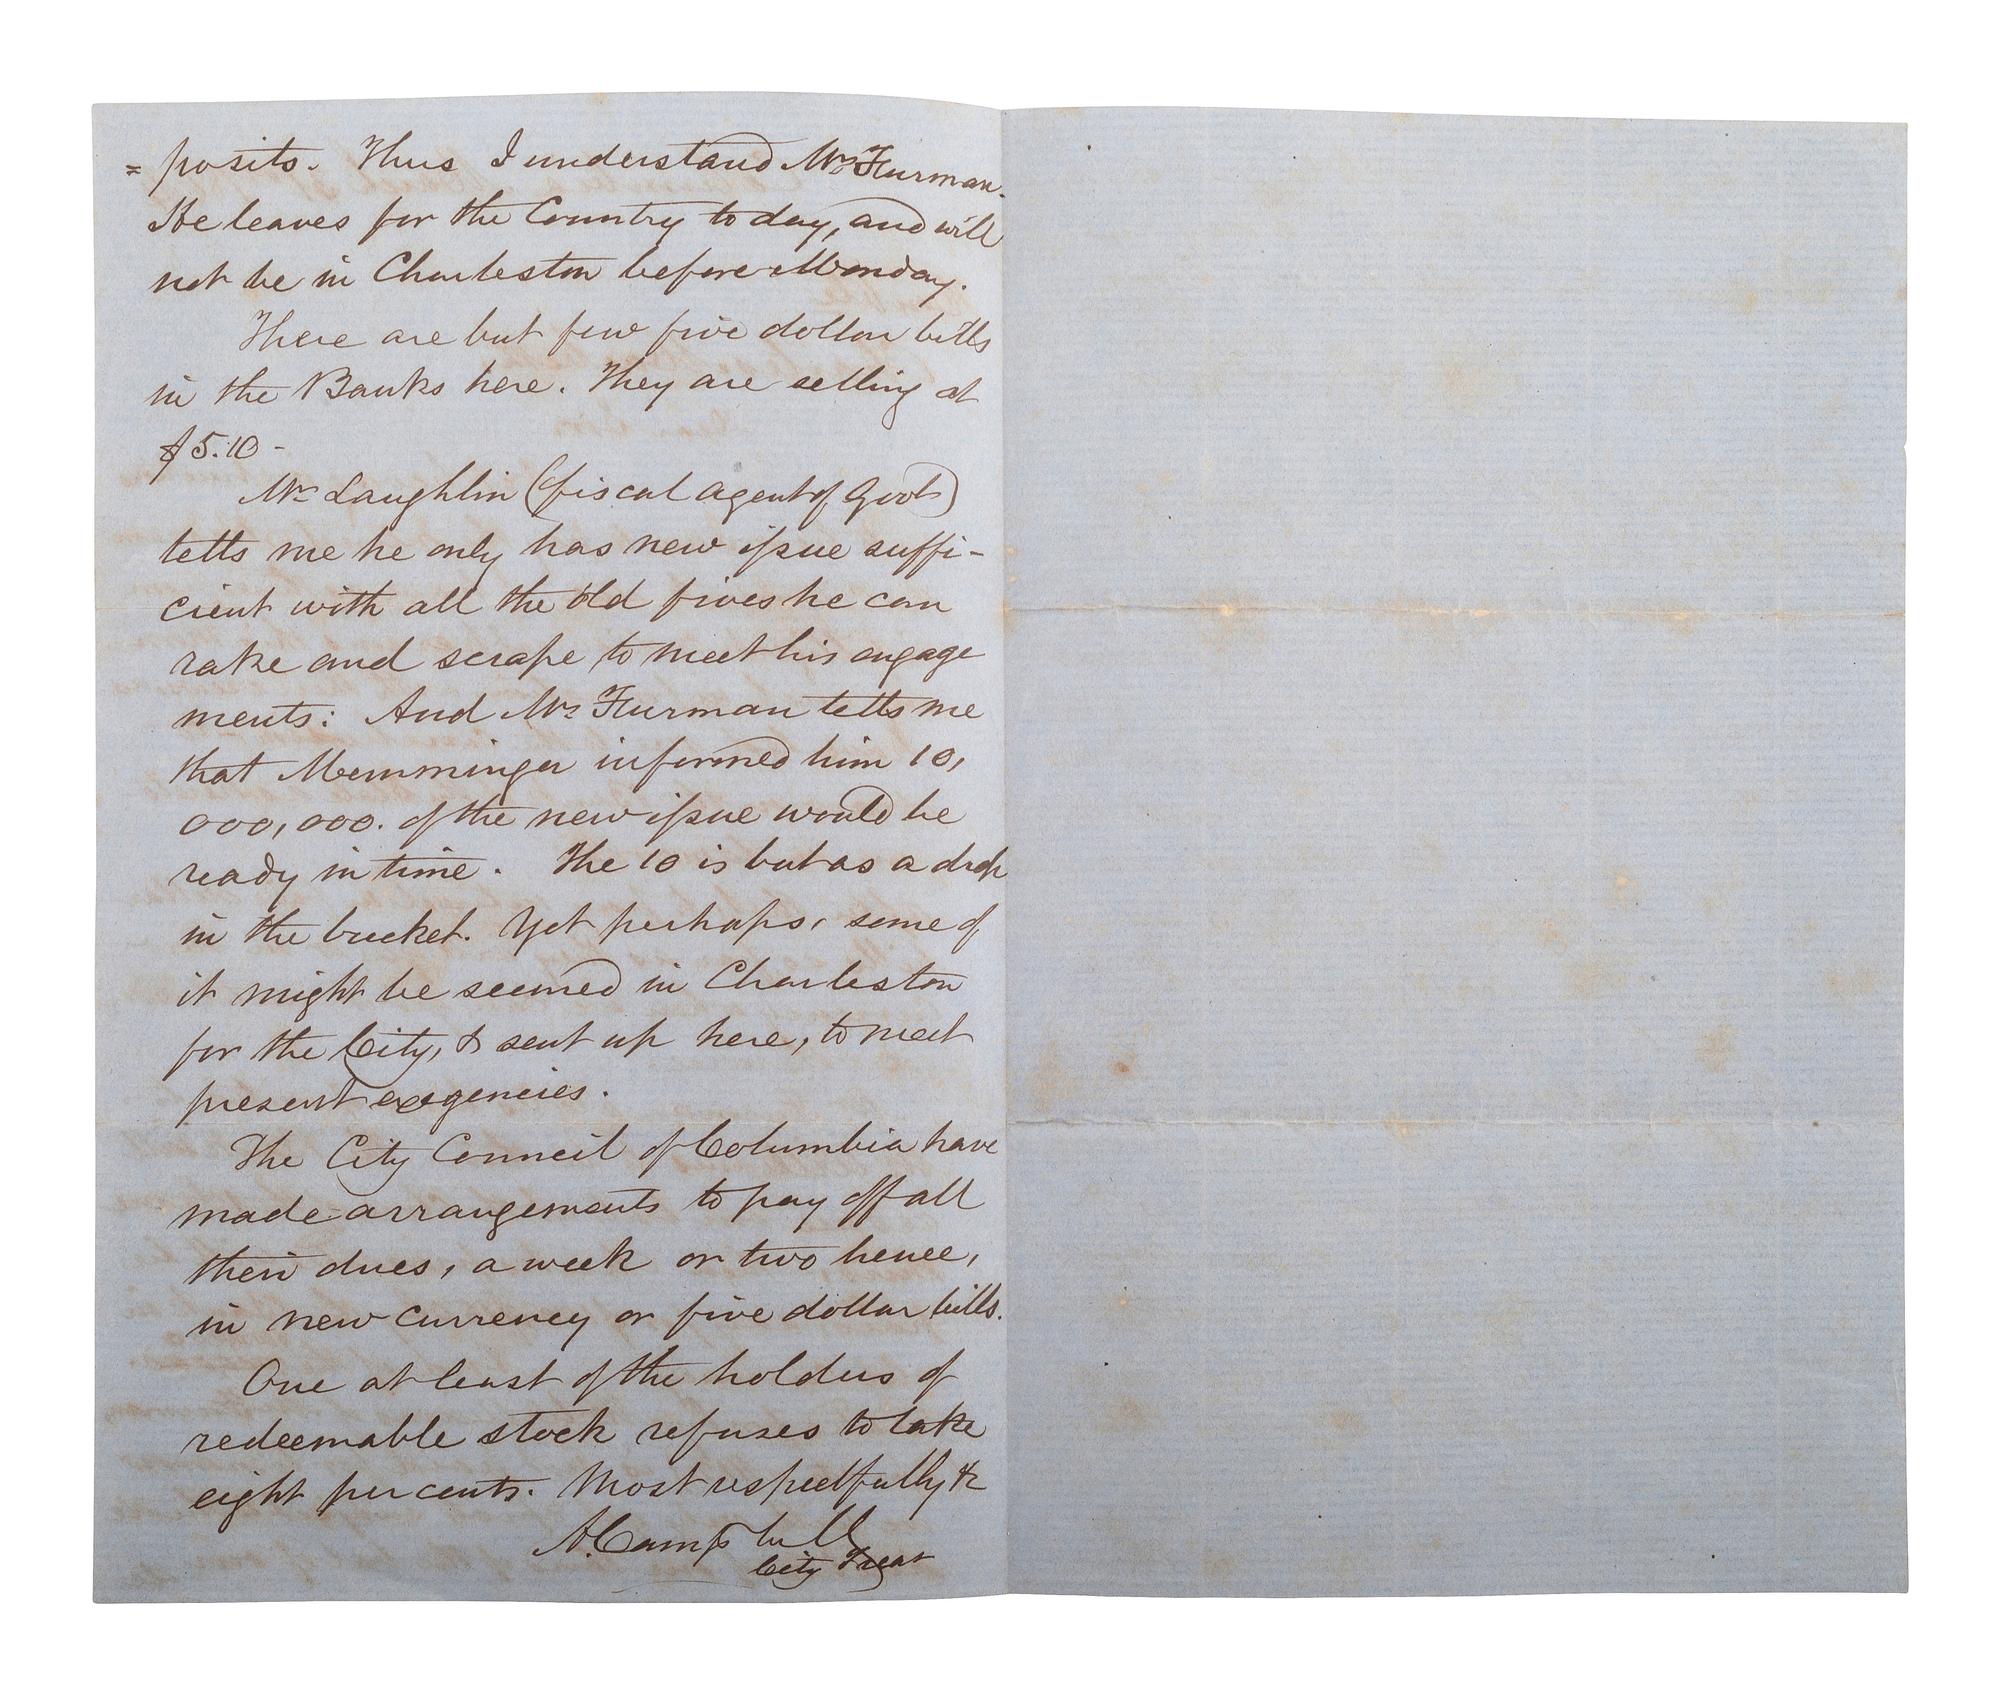 = posits. Thus I understand Mr Furman.
He leaves for the Country to day, and will
not be in Charleston before Monday.
There are but few five dollar bills
in the Banks here. They are selling at
$5.10 -
Mr Laughlin (fiscal agent of Govt)
tells me he only has new issue suffi-
cient with all the old fives he can
rake and scrape to meet his engage
ments: And Mr Furman tells me
that Memminger informed him 10,
000,000. of the new issue would be
ready in time. The 10 is but as a drop
in the bucket. Yet perhaps, some of
it might be secured in Charleston
for the City, & sent up here, to meet
present exegencies.
The City Council of Columbia have
made arrangements to pay off all
their dues, a week or two hence,
in new currency or five dollar bills.
One at least of the holders of
redeemable stock refuses to take
eight per cents. Most respectfully &c
A. Campbell
City Treas